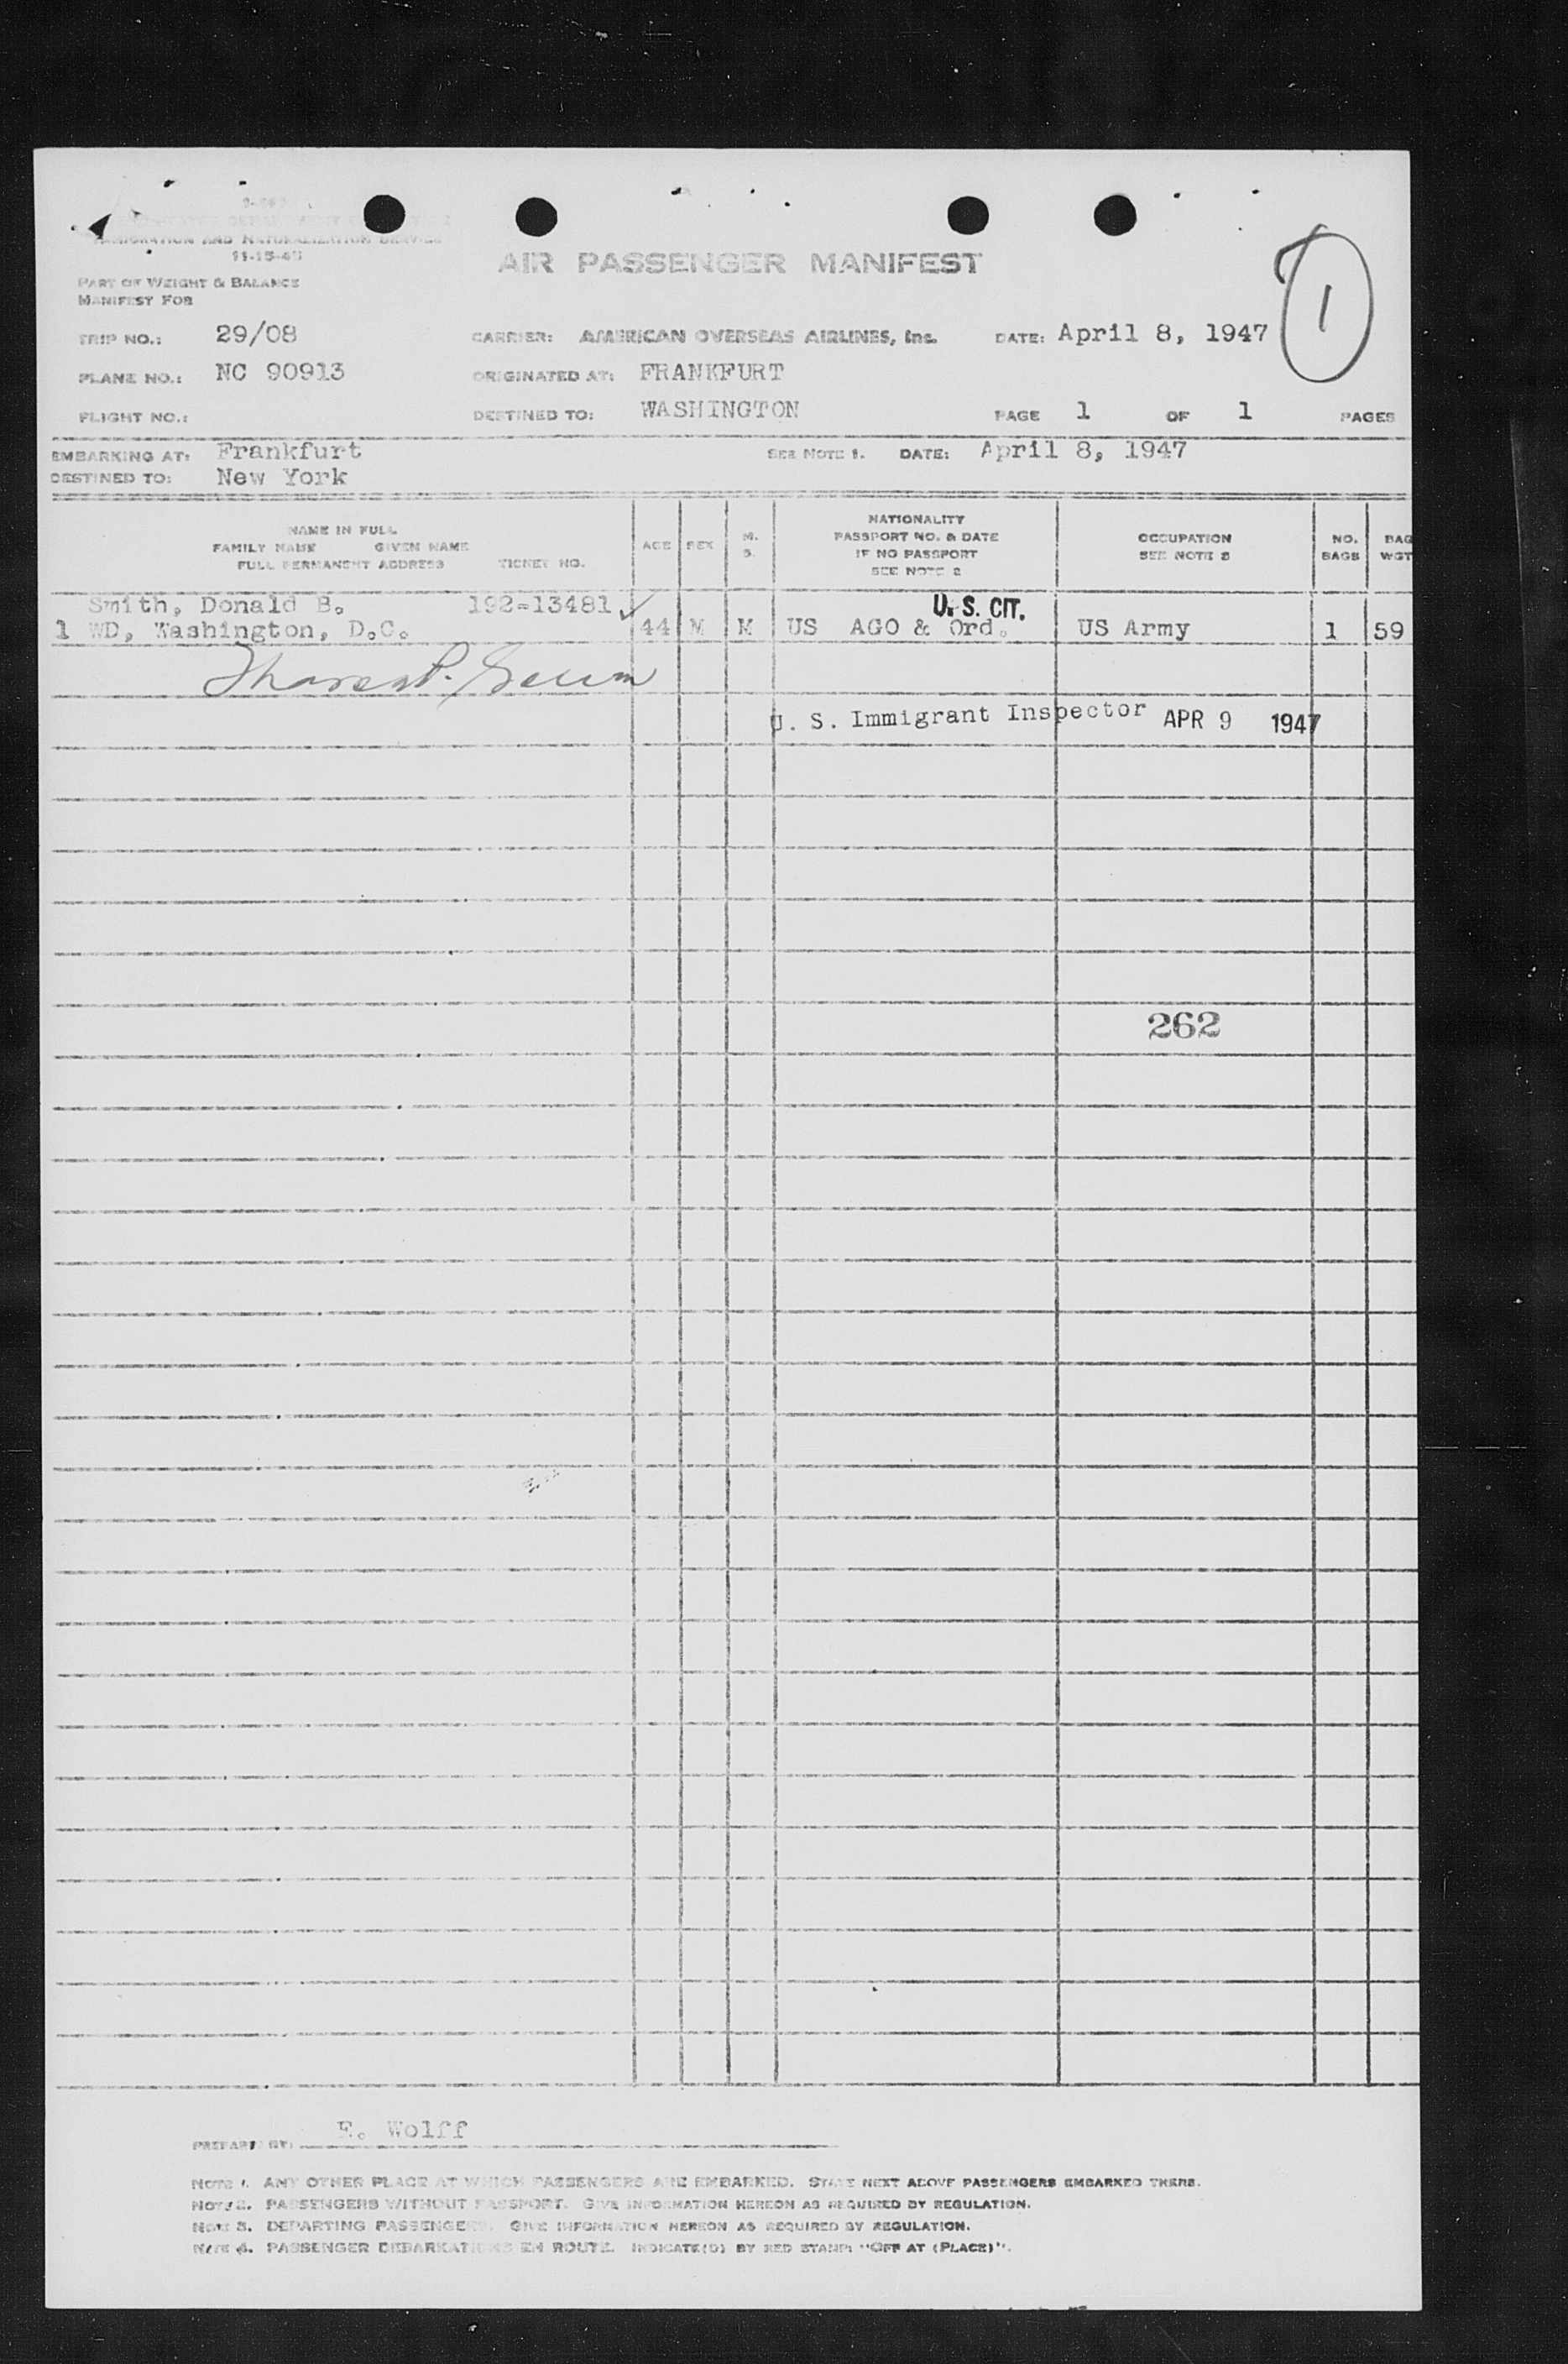 IMMIGRATION AND NATURALIZATION SERVICE
11-15-45
AIR PASSENGER MANIFEST
1
PART OF WEIGHT & BALANCE
MANIFEST FOR
TRIP NO.: 29/08 CARRIER: AMERICAN OVERSEAS AIRLINES, Inc. DATE: April 8, 1947
PLANE NO.: NC 90913 ORIGINATED AT: FRANKFURT
FLIGHT NO.: DESTINED TO: WASHINGTON PAGE 1 OF 1 PAGES
EMBARKING AT: Frankfurt SEE NOTE 1. DATE: April 8, 1947
DESTINED TO: New York
NAME IN FULL
FAMILY NAME GIVEN NAME
FULL PERMANENT ADDRESS TICKET NO.
AGE SEX M. S.
NATIONALITY
PASSPORT NO. & DATE
IF NO PASSPORT
SEE NOTE 2
OCCUPATION
SEE NOTE 3
NO. BAGS
BAG WGT
Smith, Donald B. 192-13481 U. S. CIT.
1 WD, Washington, D.C. 44 M M US AGO & Ord. US Army 1 59
U. S. Immigrant Inspector APR 9 1947
262
PREPARED BY: E. Wolff
NOTE 1. ANY OTHER PLACE AT WHICH PASSENGERS ARE EMBARKED. STATE NEXT ABOVE PASSENGERS EMBARKED THERE.
NOTE 2. PASSENGERS WITHOUT PASSPORT. GIVE INFORMATION HEREON AS REQUIRED BY REGULATION.
NOTE 3. DEPARTING PASSENGERS. GIVE INFORMATION HEREON AS REQUIRED BY REGULATION.
NOTE 4. PASSENGER DEBARKATIONS EN ROUTE. INDICATE(D) BY RED STAMP: "OFF AT (PLACE)".